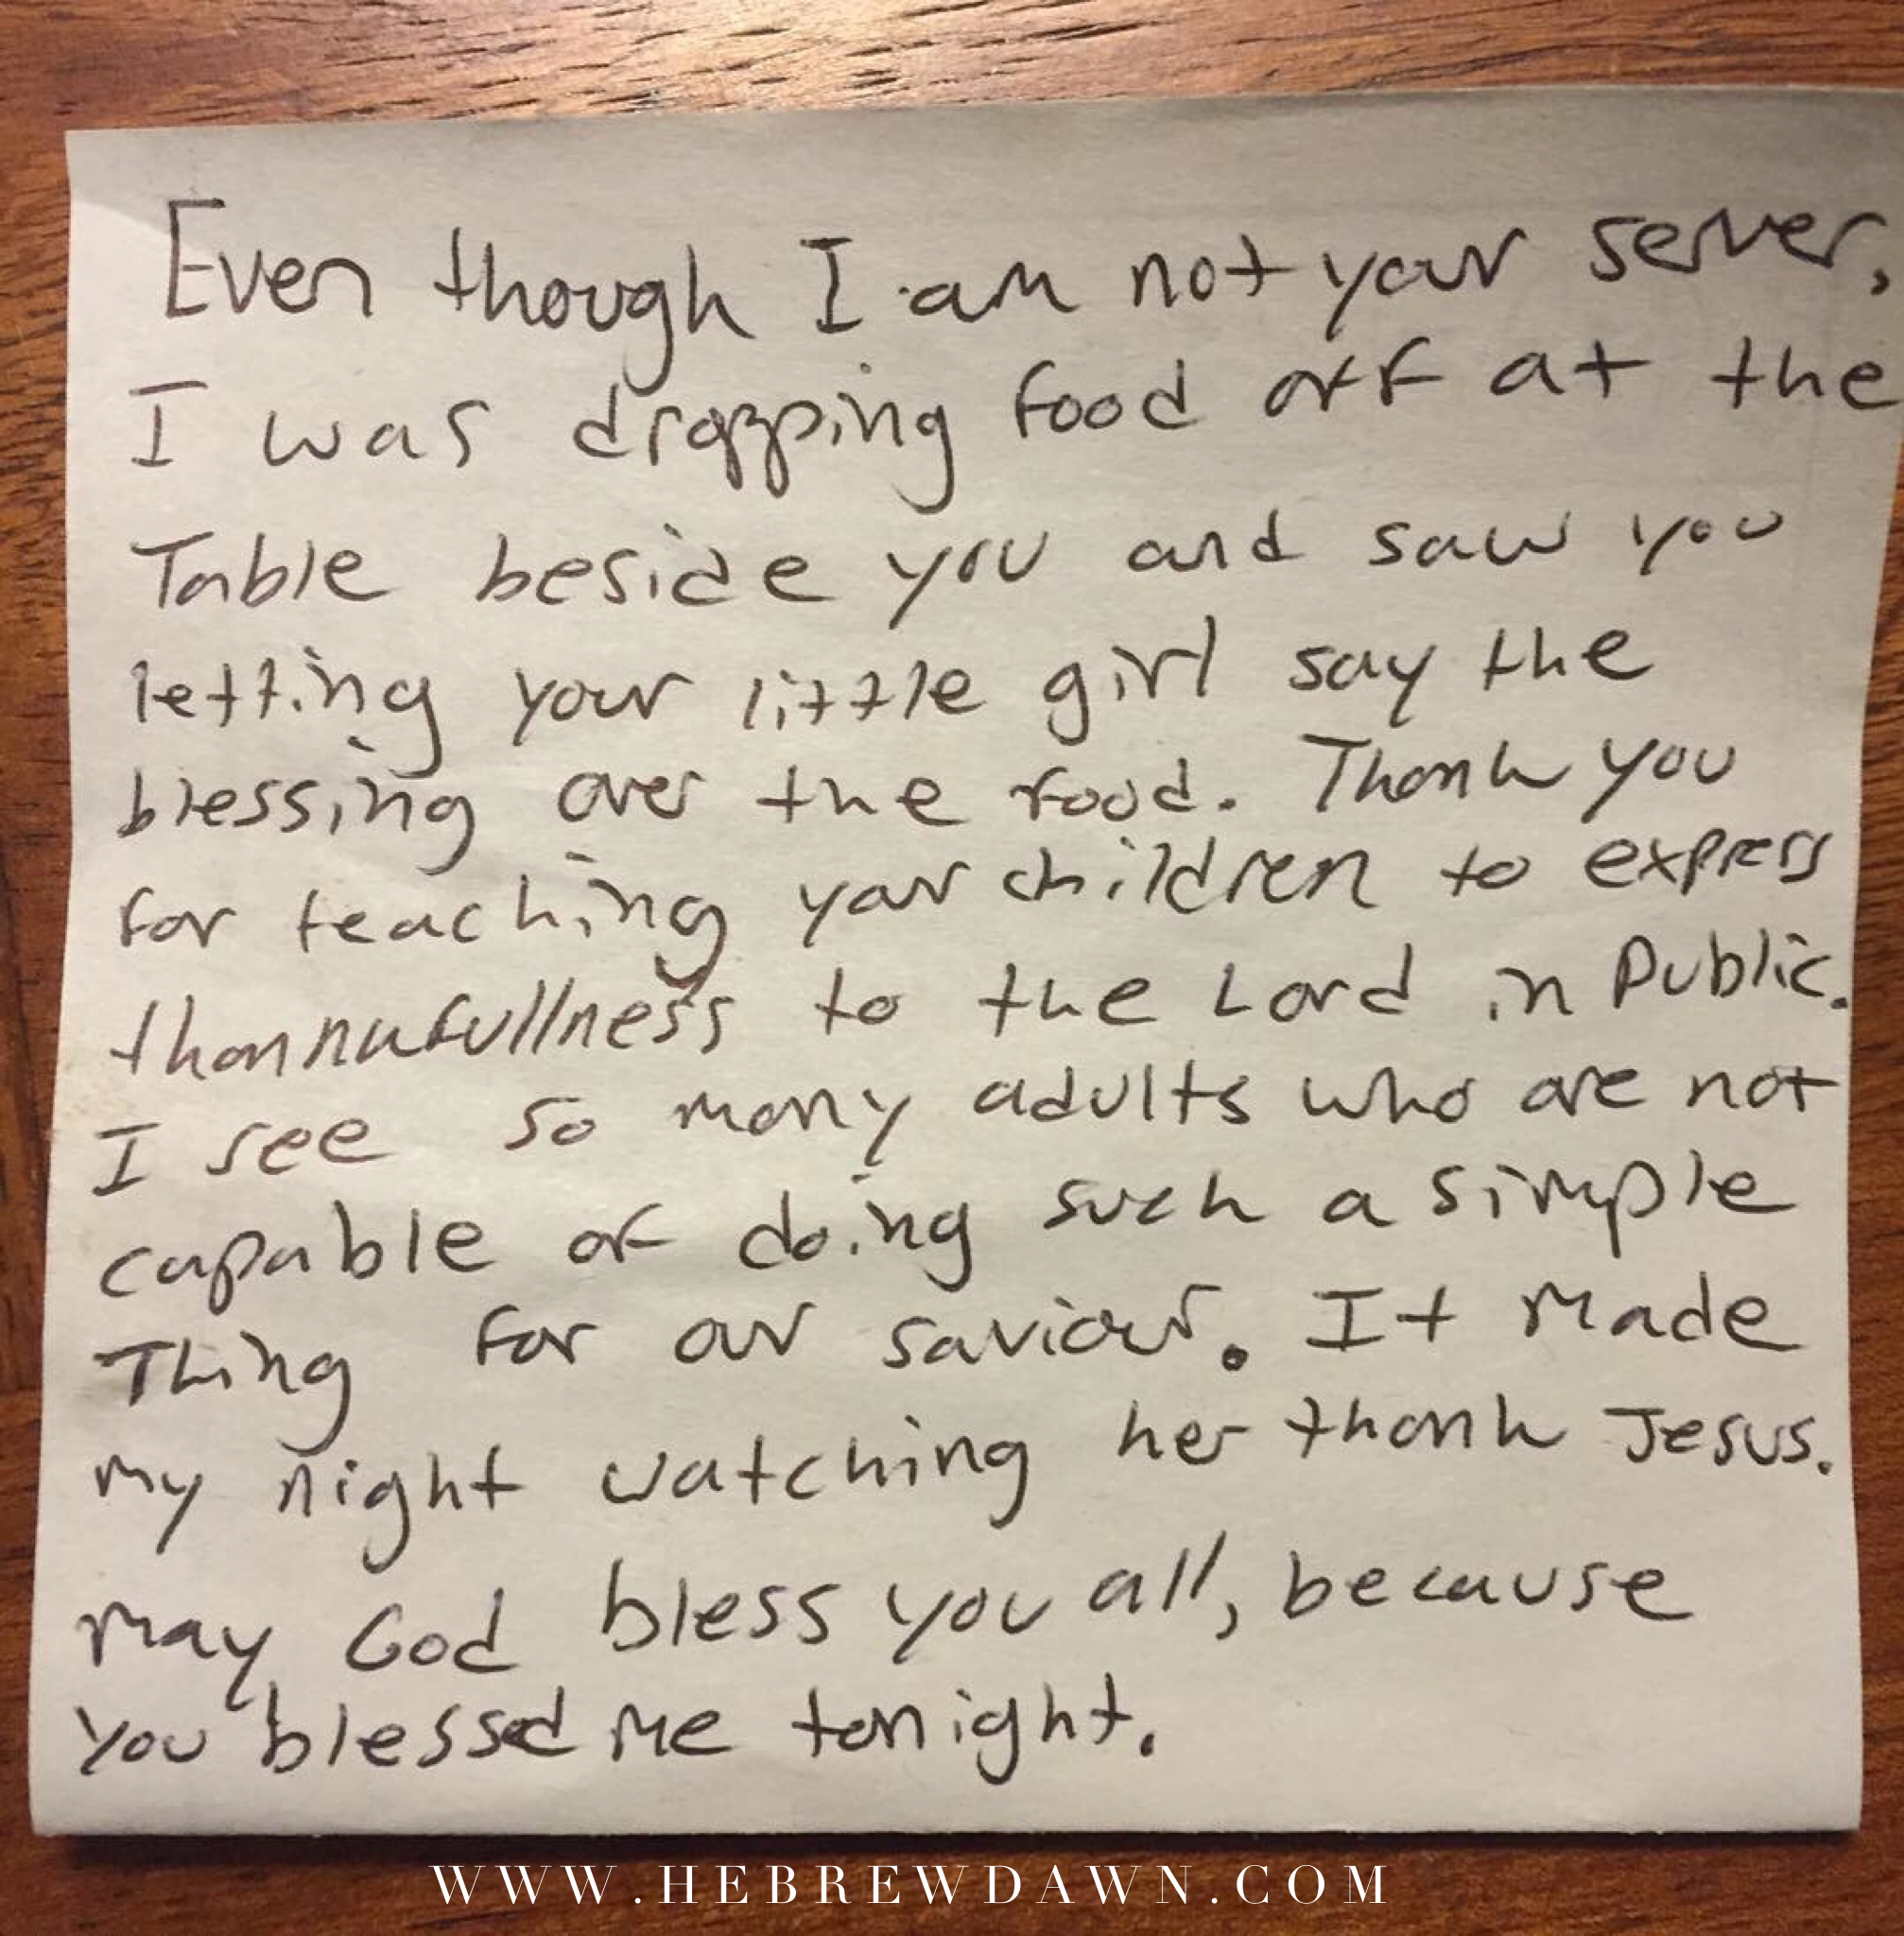 Even though I am not your server,
I was dropping food off at the
Table beside you and saw you
letting your little girl say the
blessing over the food. Thank you
for teaching your children to express
thannkfullness to the Lord in Public.
I see so many adults who are not
capable of doing such a simple
Thing for our saviour. It made
my night watching her thank Jesus.
may God bless you all, because
you blessed me tonight.
WWW.HEBREWDAWN.COM